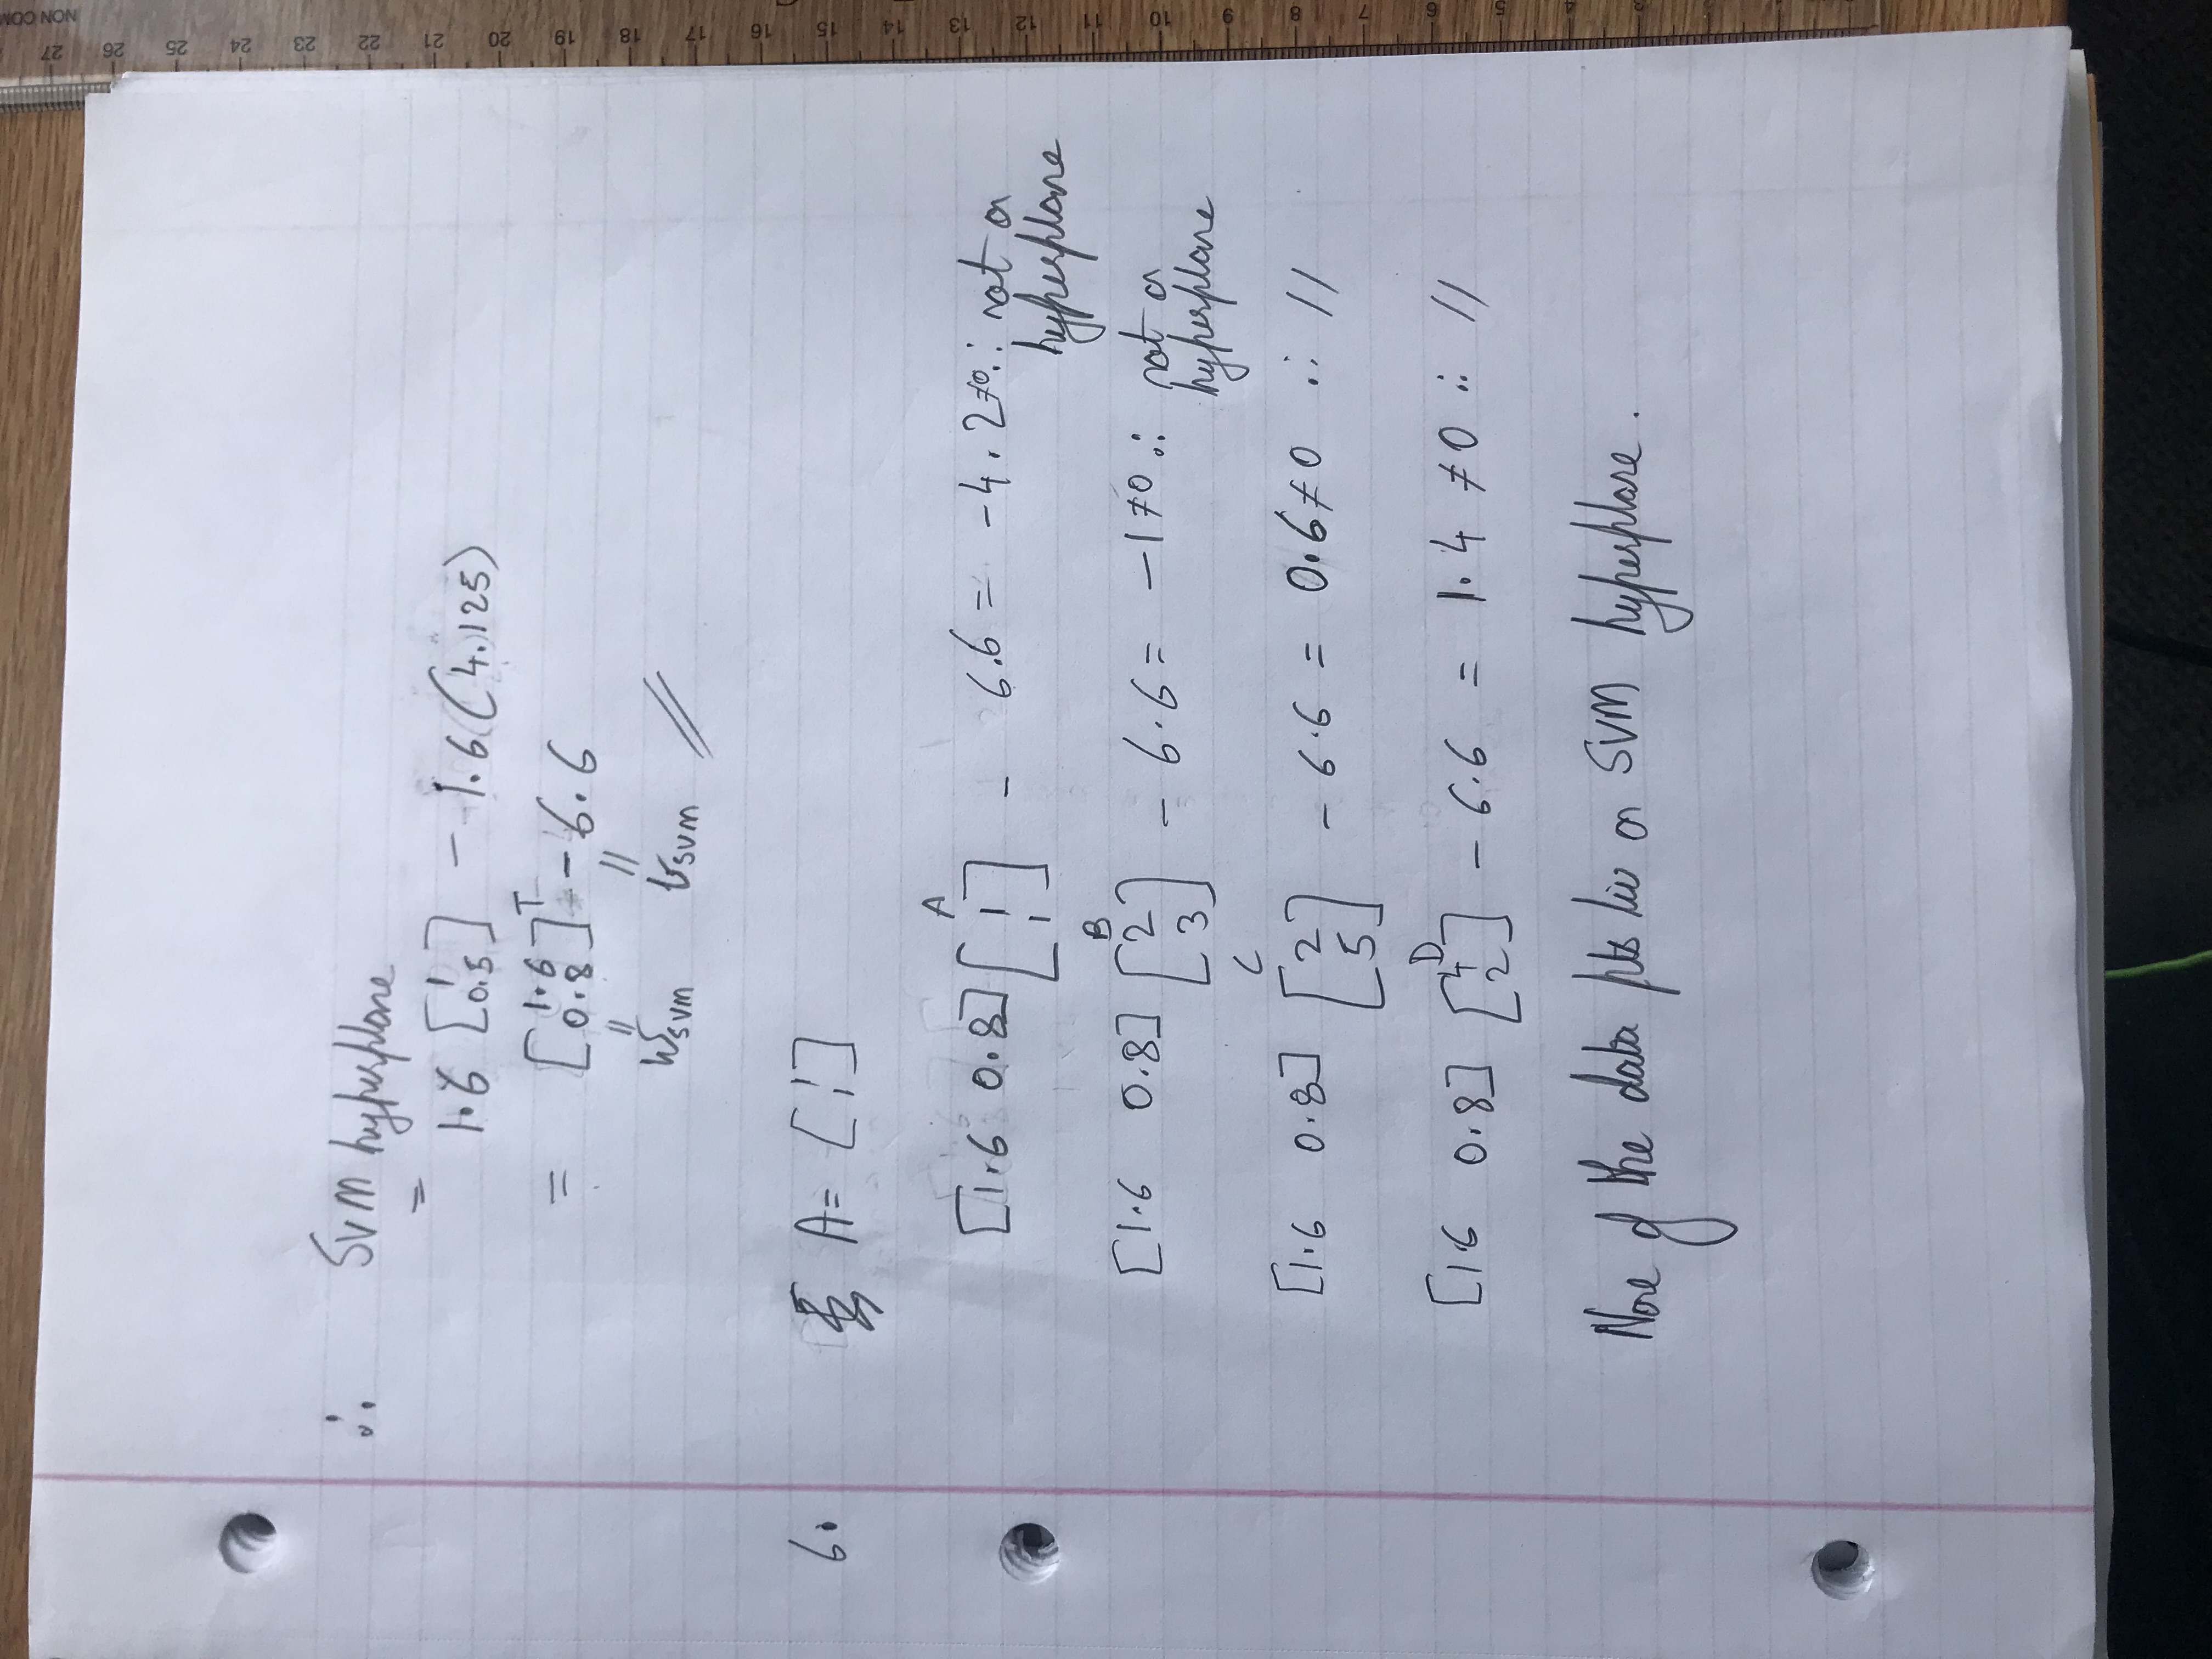 ∴ SVM hyperplane
=
1.6 [1 0.5] - 1.6 (4.125)
= [1.6 0.8]ᵀ - 6.6
॥ ॥
W_SVM b_SVM //
6. A = [1 1]
A
[1.6 0.8] [1 1] - 6.6 = -4.2 ≠0 ∴ not a
hyperplane
B
[1.6 0.8] [2 3] - 6.6 = -1 ≠0 ∴ not a
hyperplane
C
[1.6 0.8] [2 5] - 6.6 = 0.6 ≠ 0 ∴ //
D
[1.6 0.8] [4 2] - 6.6 = 1.4 ≠0 ∴ //
None of the data pts lie on SVM hyperplane.
NON COM
27
26
25
24
23
22
21
20
19
18
17
16
15
14
13
12
11
10
9
8
7
6
5
4
3